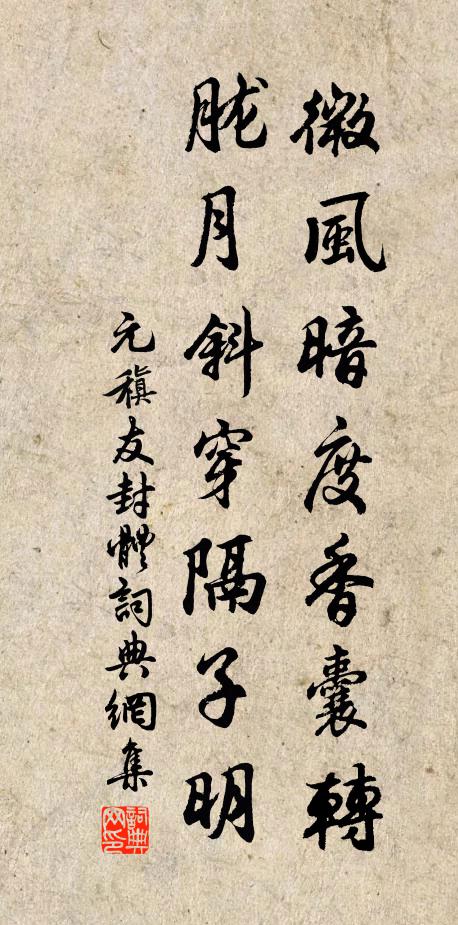 微風暗度香囊轉
朧月斜穿隔子明
元稹友封體詞典網集
詞典網印